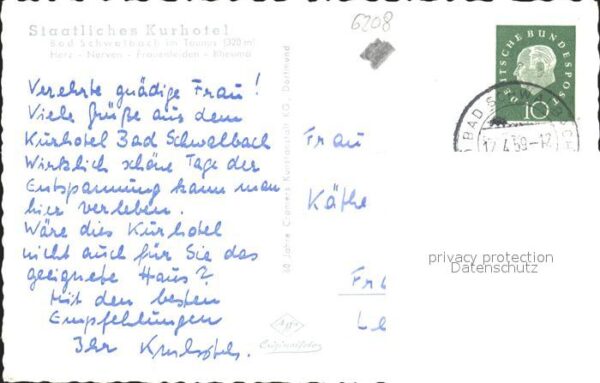 6208
Staatliches Kurhotel
Bad Schwalbach im Taunus (320 m)
Herz - Nerven - Frauenleiden - Rheuma
Verehrte gnädige Frau!
Viele Grüße aus dem
Kurhotel Bad Schwalbach
Wirklich schöne Tage der
Entspannung kann man
hier verleben.
Wäre dies Kurhotel
nicht auch für Sie das
geeignete Haus?
Mit den besten
Empfehlungen
Ihr
60 Jahre Cramers Kunstanstalt KG, Dortmund
Agfa
Originalfoto
DEUTSCHE BUNDESPOST
10
BAD SCHWALBACH
17.4.59-12
Frau
Käthe
privacy protection
Datenschutz